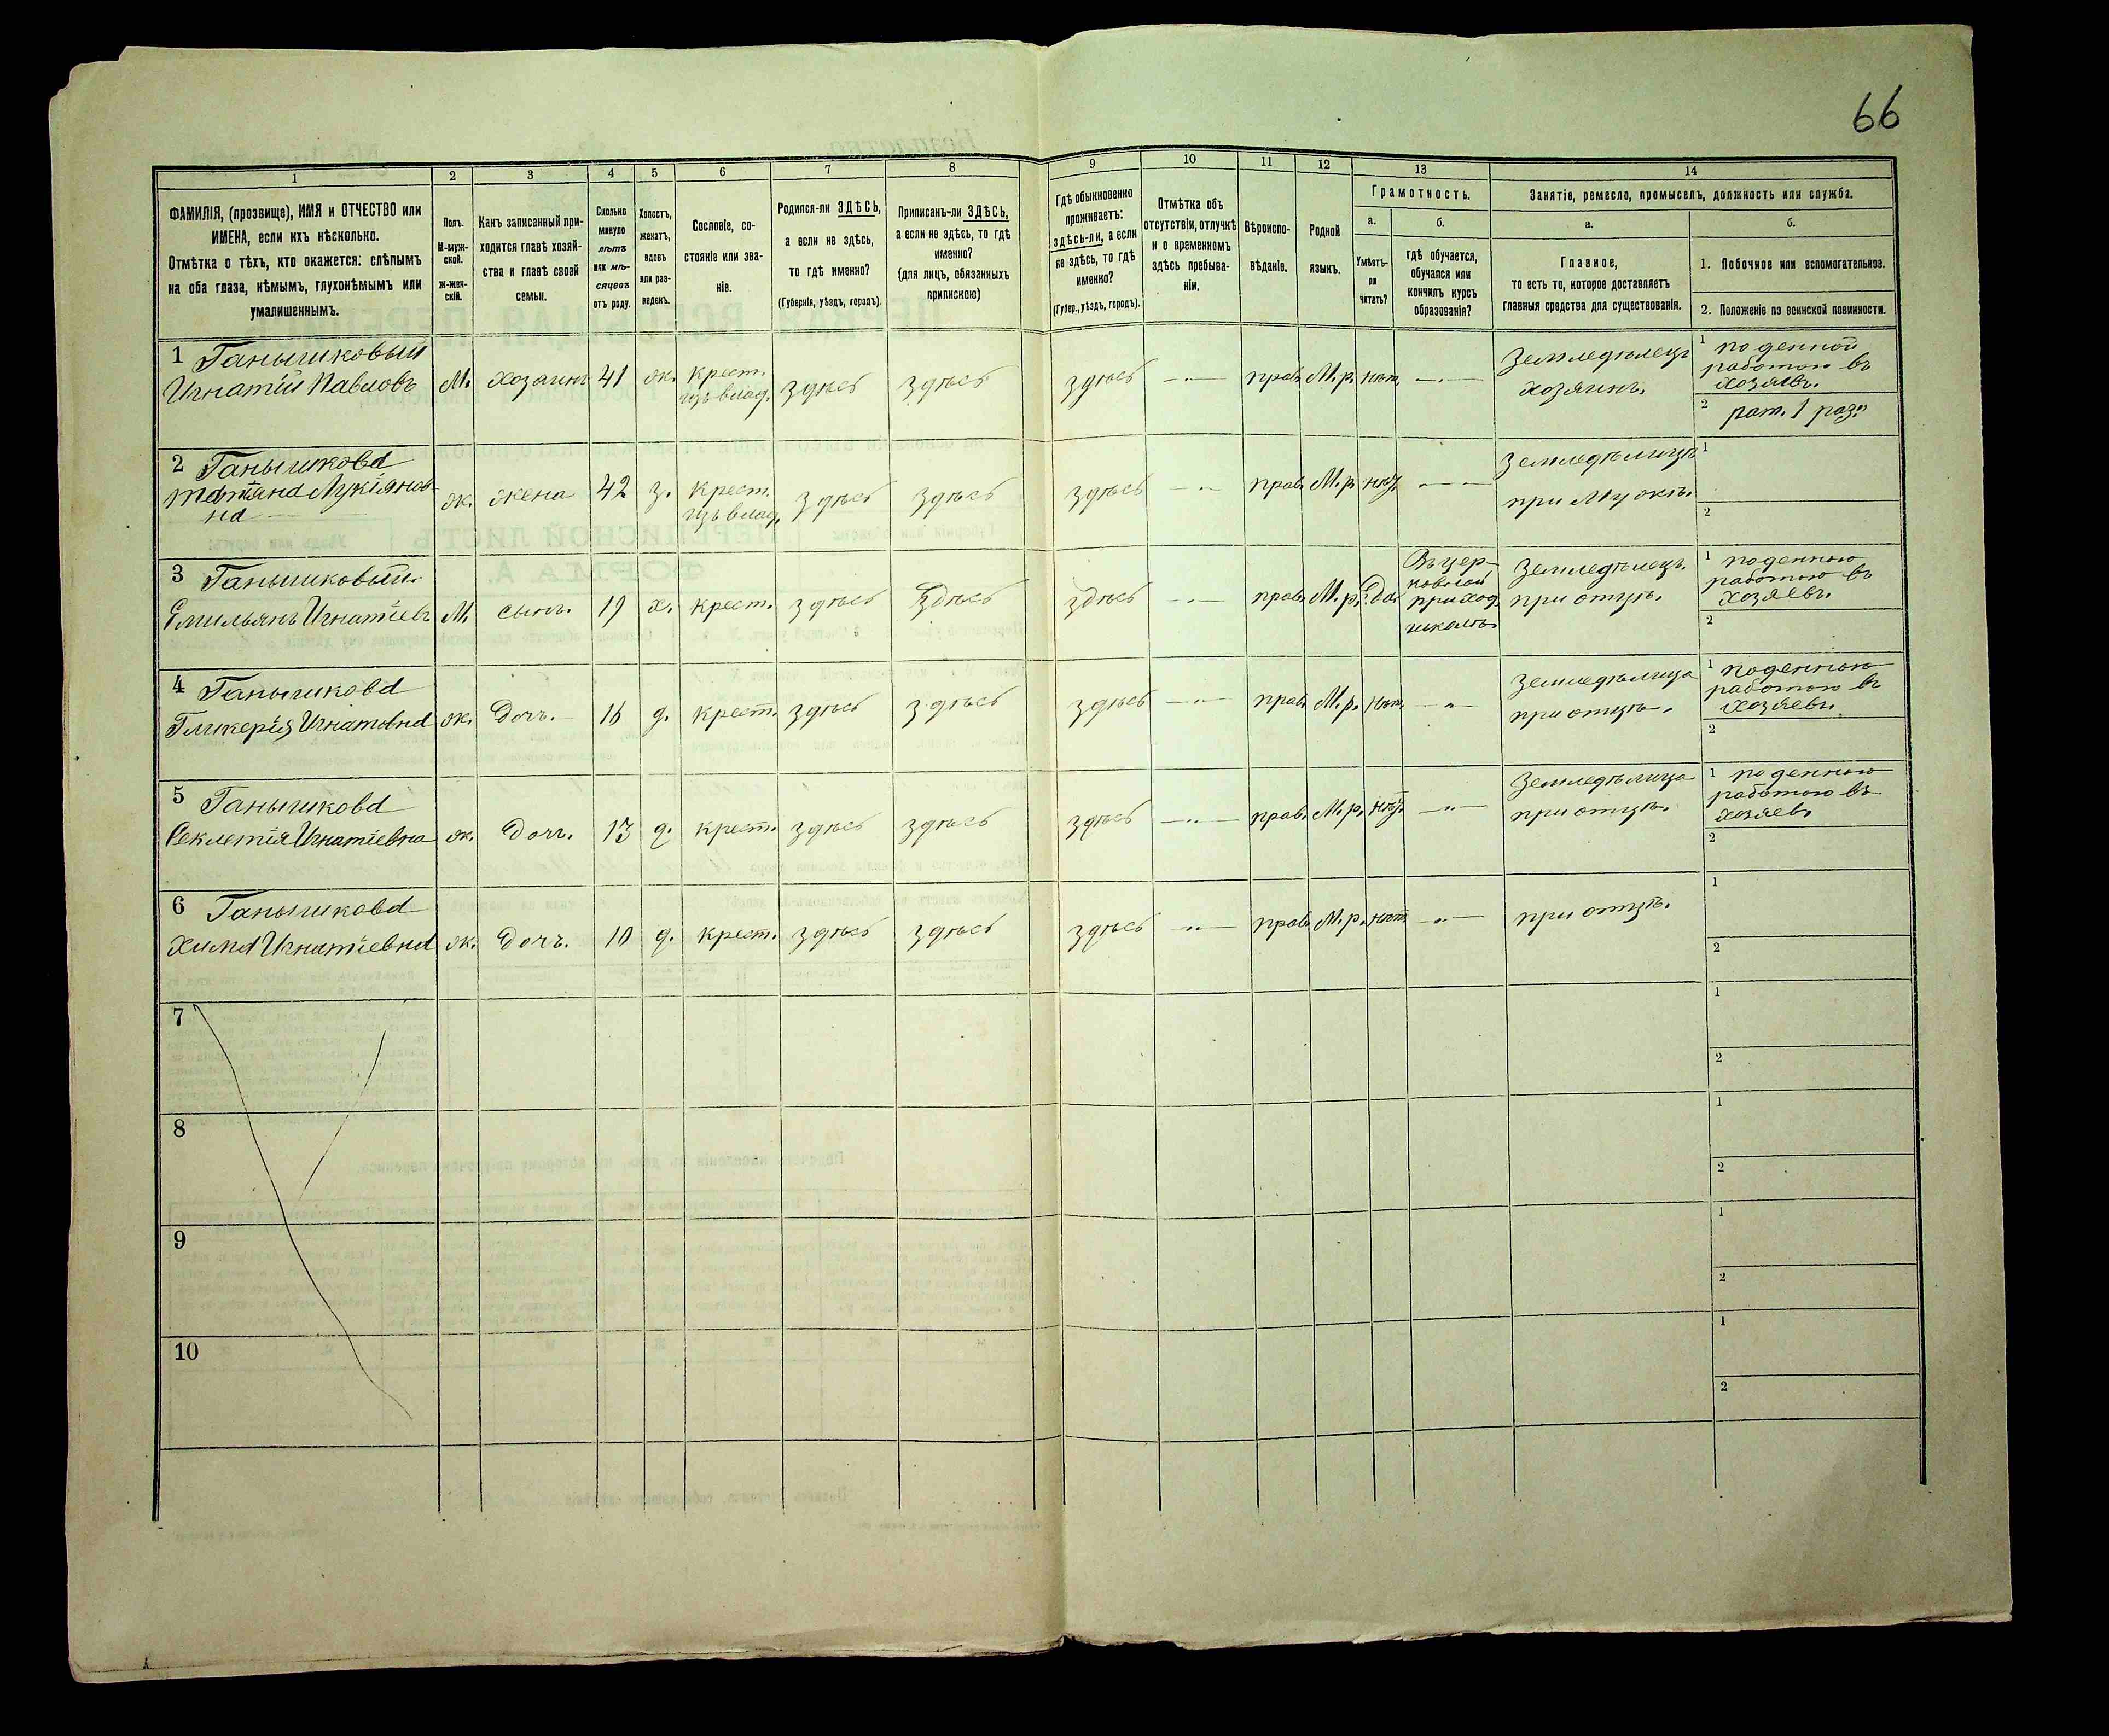 66
1
2
3
4
5
6
7
8
9
10
11
12
13
14
ФАМИЛІЯ, (прозвище), ИМЯ и ОТЧЕСТВО или
ИМЕНА, если ихъ нѣсколько.
Отмѣтка о тѣхъ, кто окажется: слѣпымъ
на оба глаза, нѣмымъ, глухонѣмымъ или
умалишеннымъ.
Полъ.
М-муж-
ской.
Ж-жен-
скій.
Какъ записанный при-
ходится главѣ хозяй-
ства и главѣ своей
семьи.
Сколько
минуло
лѣтъ
или мѣ-
сяцевъ
отъ роду.
Холостъ,
женатъ,
вдовъ
или раз-
веденъ.
Сословіе, со-
стояніе или зва-
ніе.
Родился-ли ЗДѢСЬ,
а если не здѣсь,
то гдѣ именно?
(Губернія, уѣздъ, городъ).
Приписанъ-ли ЗДѢСЬ,
а если не здѣсь, то гдѣ
именно?
(для лицъ, обязанныхъ
припискою)
Гдѣ обыкновенно
проживаетъ:
здѣсь-ли, а если
не здѣсь, то гдѣ
именно?
(Губер., уѣздъ, городъ).
Отмѣтка объ
отсутствіи, отлучкѣ
и о временномъ
здѣсь пребыва-
ніи.
Вѣроиспо-
вѣданіе.
Родной
языкъ.
Грамотность.
а.
Умѣетъ-
ли
читать?
б.
Гдѣ обучается,
обучался или
кончилъ курсъ
образованія?
Занятіе, ремесло, промыселъ, должность или служба.
а.
Главное,
то есть то, которое доставляетъ
главныя средства для существованія.
б.
1. Побочное или вспомогательное.
2. Положеніе по воинской повинности.
1 Ганышковый
Игнатій Павловъ М. хозяинъ 41 ж. крест. изъ влад. здѣсь здѣсь здѣсь -"- прав. М.р. нѣт. -"-
Земледѣлецъ
хозяинъ.
1 поденной
работою въ
хозяевъ.
2 рат. 1 раз.
2 Ганышкова
Татіяна Лукіянов-
на ж. жена 42 з. крест. изъ влад. здѣсь здѣсь здѣсь -"- прав. М.р. нѣт. -"-
Земледѣлица
при мужѣ.
1
2
3 Ганышковый.
Емильянъ Игнатіевъ М. сынъ. 19 х. крест. здѣсь здѣсь здѣсь -"- прав. М.р. да.
Въ цер-
ковной
приход.
школѣ
Земледѣлецъ.
при отцѣ.
1 поденною
работою въ
хозяевъ.
2
4 Ганышкова
Гликерія Игнатовна ж. дочь. 16 д. крест. здѣсь здѣсь здѣсь -"- прав. М.р. нѣт. -"-
Земледѣлица
при отцѣ.
1 поденною
работою въ
хозяевъ.
2
5 Ганышкова
Секлетія Игнатіевна ж. дочь. 13 д. крест. здѣсь здѣсь здѣсь -"- прав. М.р. нѣт. -"-
Земледѣлица
при отцѣ.
1 поденною
работою въ
хозяев.
2
6 Ганышкова
Химa Игнатіевна ж. дочь. 10 д. крест. здѣсь здѣсь здѣсь -"- прав. М.р. нѣт. -"- при отцѣ.
1
2
7
1
2
8
1
2
9
1
2
10
1
2